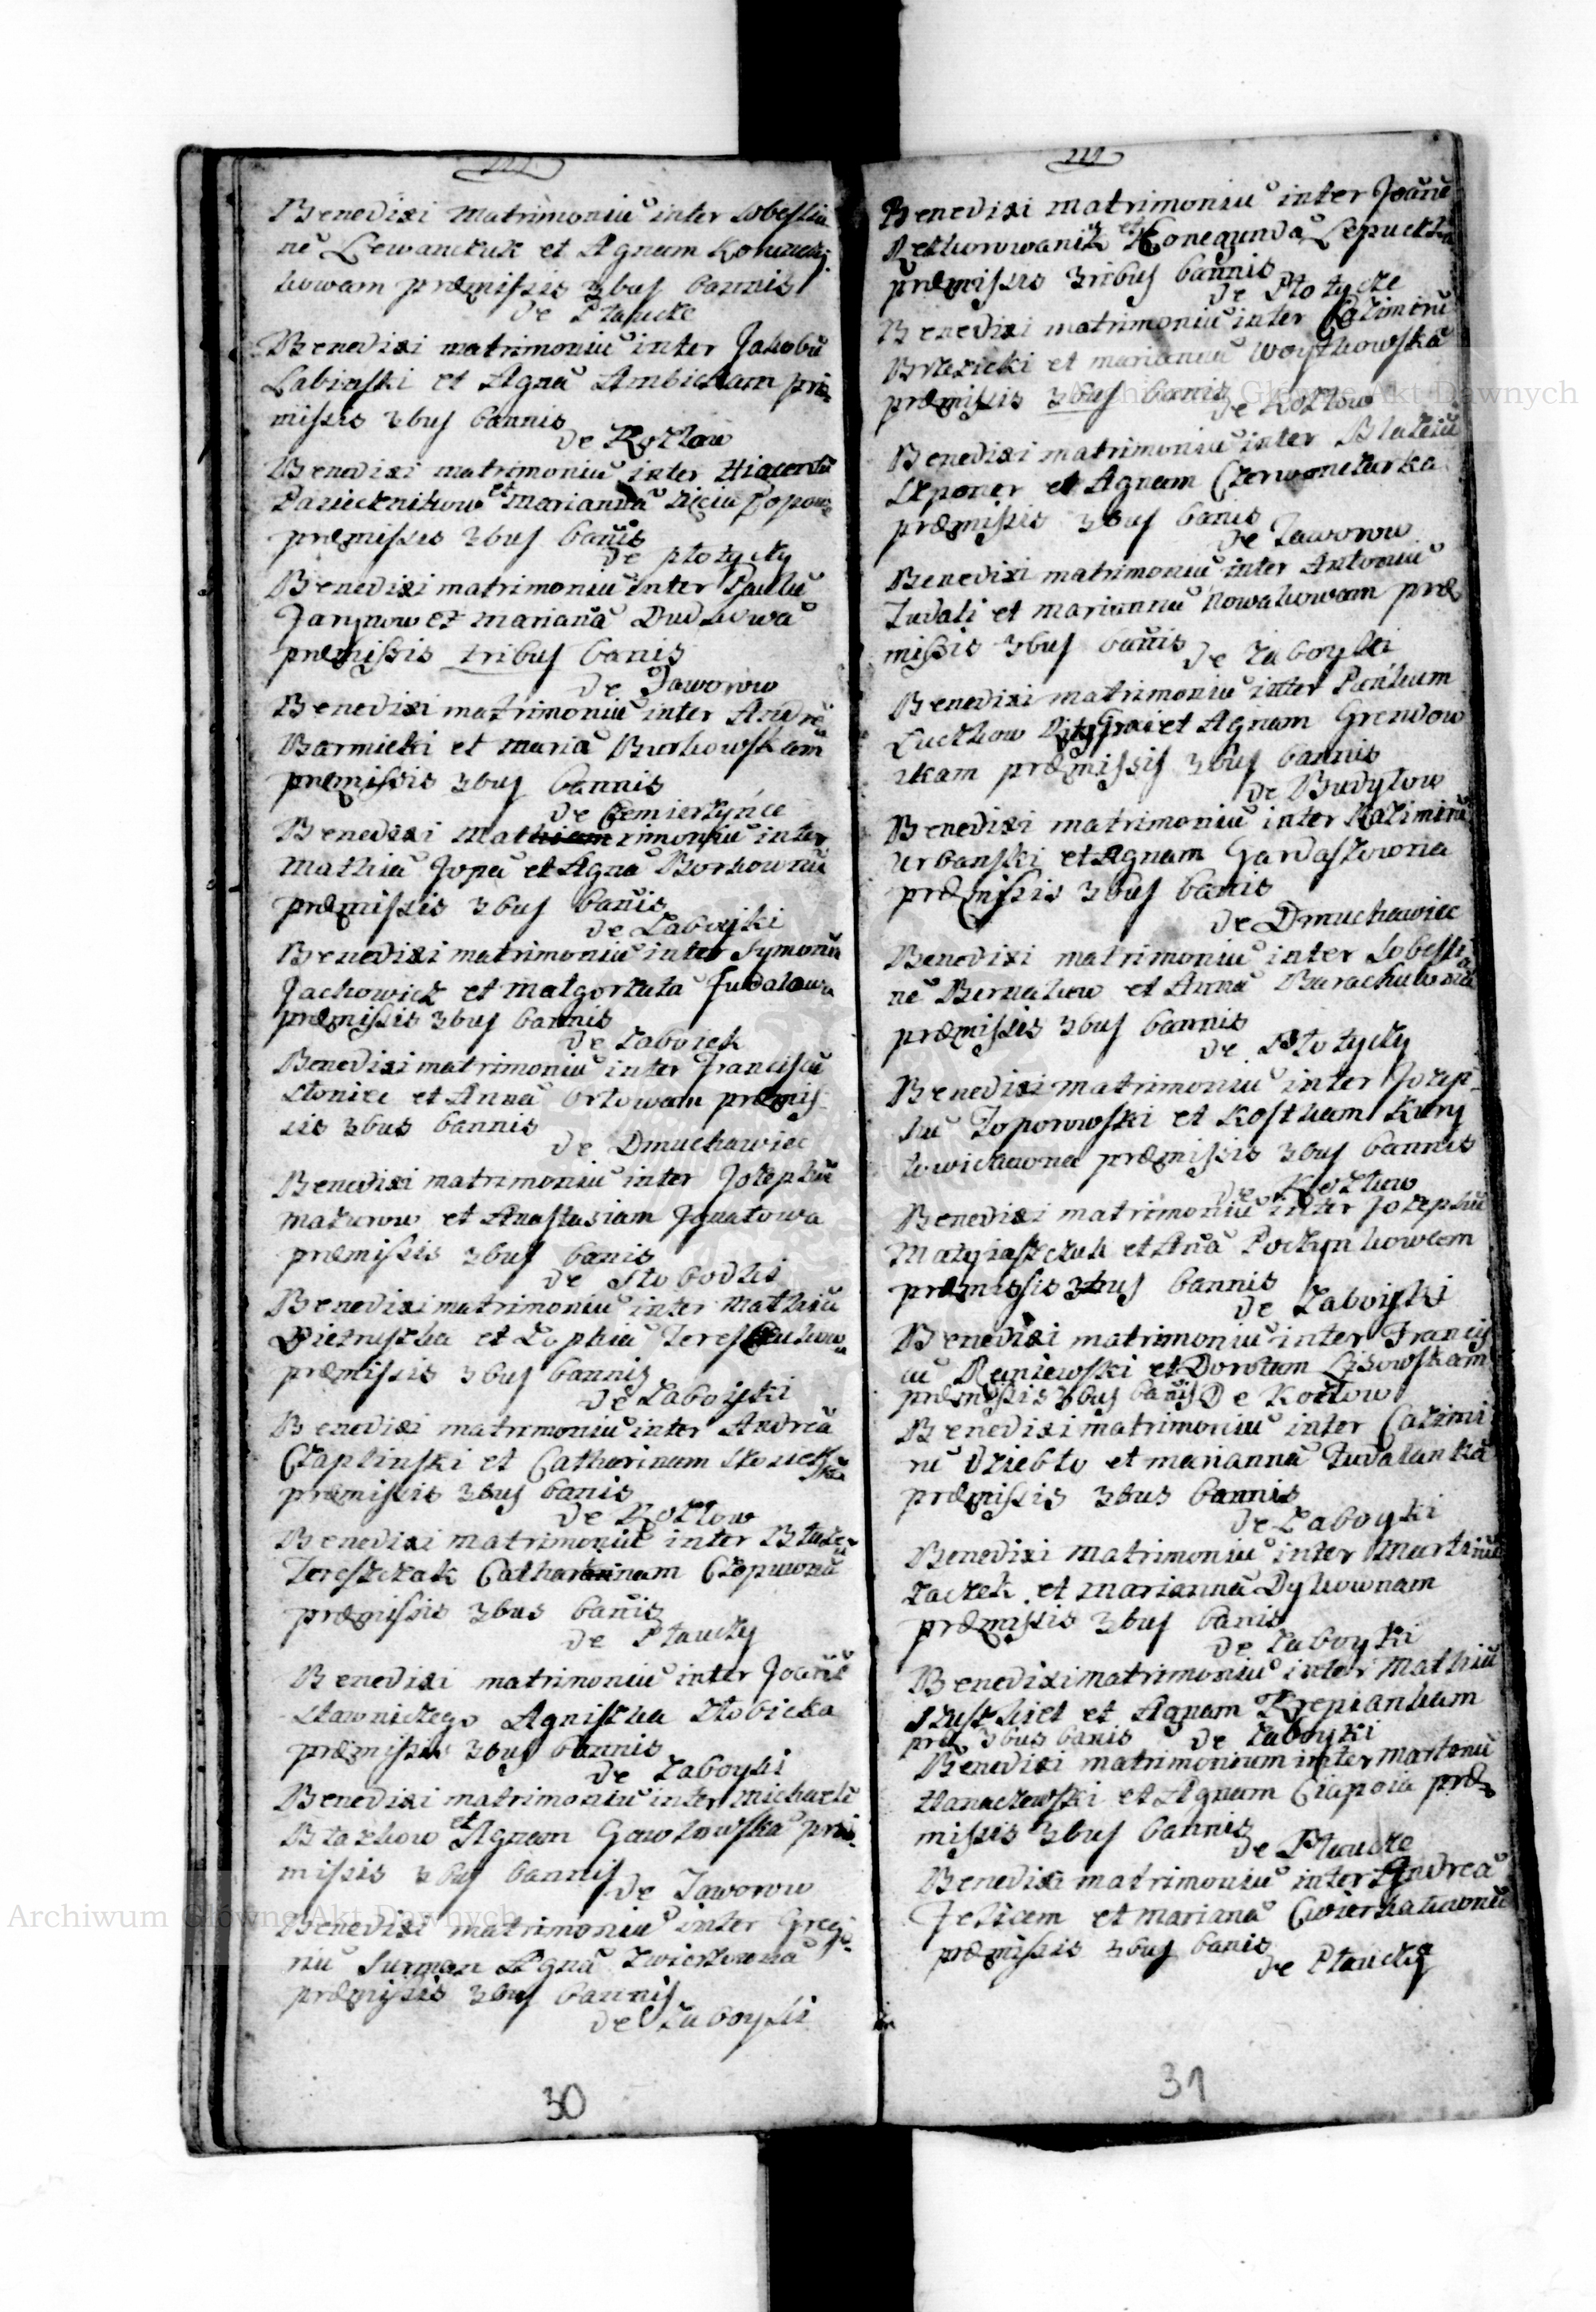 Benedixi matrimoniu inter Sobestia
nē Lewanczuk et Agnam
kowam præmissis 3bus bannis
de Płaucze
Benedixi matrimoniū inter Jakobū
Labinski et Agnā Ambickam præ
missis 3bus bannis
de Kozłow
Benedixi matrimoniū inter Hiacentū
Pasiecznikow et Mariannā
præmissis 3bus banis
de płotyczy
Benedixi matrimoniū inter Paulū
Jarynow et Marianā
præmissis tribus banis
de Jaworow
Benedixi matrimoniū inter Andreā
Barnicki et Mariā Burkowskam
præmissis 3bus bannis
de Cemierzyńce
Benedixi matrimoniu inter
Mathiā Jopā et Agnā Borkownū
præmissis 3bus banis
de Zaboyki
Benedixi matrimoniū inter Symonū
Jachowicz et Małgorzata Judalowa
præmissis 3bus bannis
de Zaboiek
Benedixi matrimoniū inter Franciscū
Słonice et Annā Orłowam præmis
sis 3bus bannis
de Dmuchawiec
Benedixi matrimoniū inter Jozephū
Mazurow et Anastasiam Jgnatowa
præmissis 3bus banis
de Słobodki
Benedixi matrimoniū inter Mathiā
Pietruszka et Zophiā
præmissis 3bus bannis
de Zaboyki
Benedixi matrimoniū inter Andreā
Czaplinski et Catharinam
præmissis 3bus banis
de Kozłow
Benedixi matrimoniū inter Błażeū
Tereszczak Catharinam Czopuwnā
præmissis 3bus banis
de Płauczy
Benedixi matrimoniū inter Joanē
Sławniczego Agniszka Złobicka
præmissis 3bus bannis
de Zaboyki
Benedixi matrimoniū inter Michaelū
Błazkow et Agnam Gawłowskā præ
missis 3bus bannis
de Jaworow
Benedixi matrimoniū inter Grego
riū Surman Agnā
præmissis 3bus bannis
de Zaboyki
30
Benedixi matrimoniū inter Joanē
et Conegundā
præmissis 3ribus bannis
de Płotycze
Benedixi matrimoniū inter Cazimirū
Brzezicki et mariannā Woytkowskā
præmissis 3bus banis
de Kozłow
Benedixi matrimoniū inter Blazeiū
et Agnam Czerwonczurka
præmissis 3bus banis
de Jaworow
Benedixi matrimoniū inter Antoniū
Judali et mariannā Nowakowam præ
missis 3bus banis
de Zaboyki
Benedixi matrimoniū inter
Łuczkow et Agnam Grendow
skam præmissis 3bus bannis
de Budyłow
Benedixi matrimoniū inter Kazimirū
Urbanski et Agnam Gardaszowna
præmissis 3bus banis
de Dmuchawiec
Benedixi matrimoniū inter Sobestia
nē Bernakow et Annā
præmissis 3bus bannis
de Płotyczy
Benedixi matrimoniū inter Jozep
hū Toporowski et Kostkam Kury
łowiczowna præmissis 3bus bannis
de Kozłow
Benedixi matrimoniū inter Jozephū
Matyiaszczuk et Anā
præmissis 3bus bannis
de Zaboyki
Benedixi matrimoniū inter Francis
cū Raniewski et Dorotam Lisowskam
præmissis 3bus banis De Kozłow
Benedixi matrimoniū inter Cazimi
rū Dziebło et mariannā Judalankā
præmissis 3bus bannis
de Zaboyki
Benedixi matrimoniū inter Martinū
Zaczek et Mariannā Dykownam
præmissis 3bus banis
de Zaboyki
Benedixi matrimoniū inter Mathiū
et Agnam
præ 3bus banis de Zaboyki
Benedixi matrimonium inter Martinū
Hanaczewski et Agnam Ciapoia præ
missis 3bus bannis
de Płaucze
Benedixi matrimoniū inter Andreā
Felicem et marianā
præmissis 3bus banis
de Płauczy
31
Archiwum Główne Akt Dawnych
Archiwum Główne Akt Dawnych